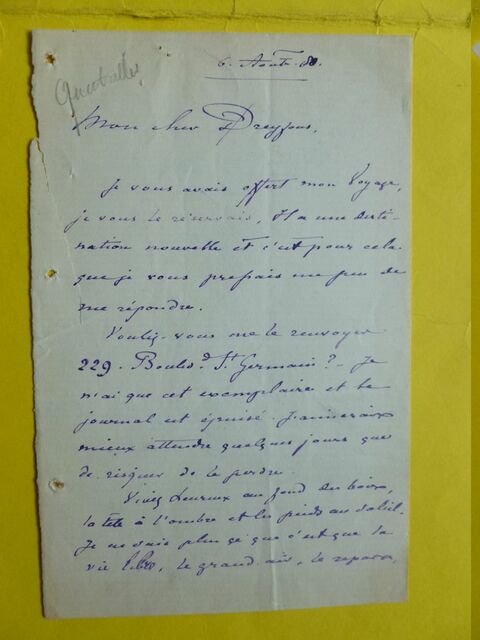 6. Août. 80.
Mon cher Dreyfous,
Je vous avais offert mon Voyage,
je vous le réservais. Il a une desti-
nation nouvelle et c'est pour cela
que je vous pressais un peu de
me répondre.
Voulez-vous me le renvoyer
229. Boulev.d St Germain? - Je
n'ai que cet exemplaire et le
journal est épuisé. J'aimerais
mieux attendre quelques jours que
de risquer de le perdre.
Vivez heureux au fond des bois,
la tête à l'ombre et les pieds au soleil.
Je ne sais plus ce que c'est que la
vie libre, le grand air, le repos,